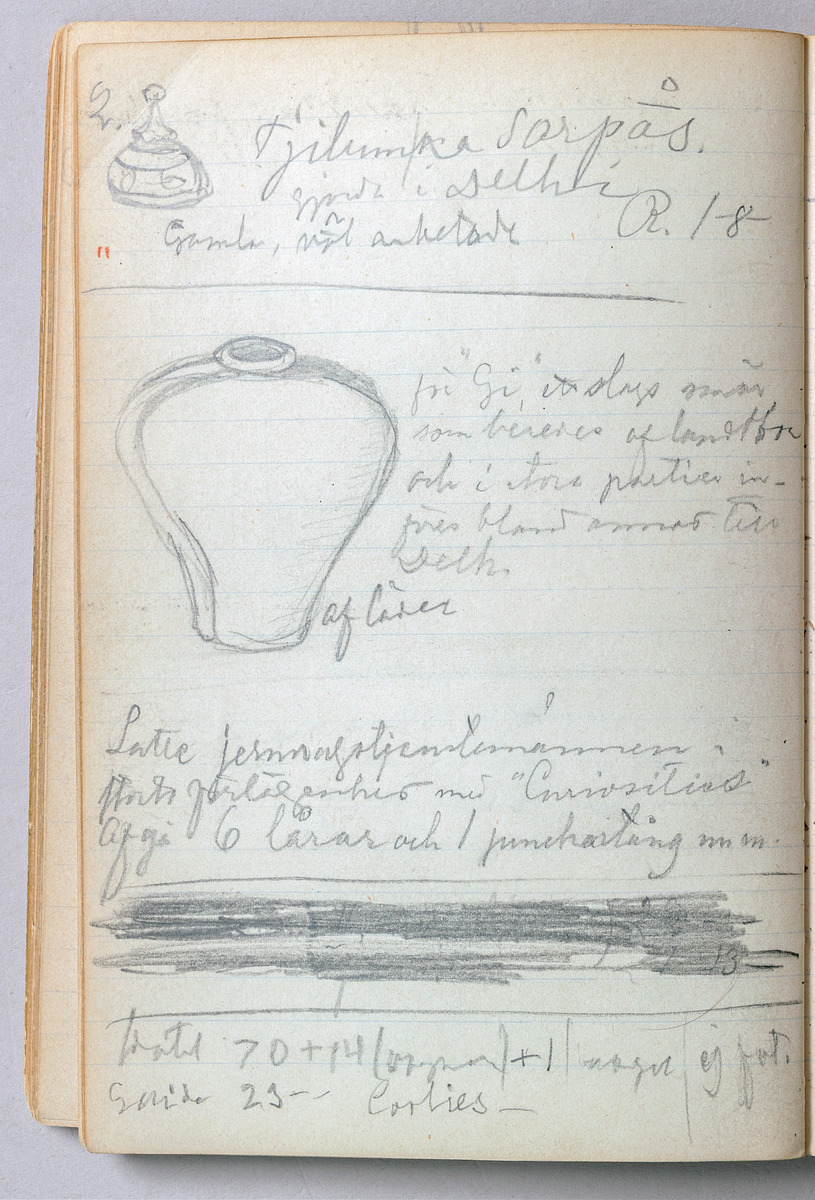 2.
Tjilumka Sarpås.
gjorda i Delhi
Gamla, väl arbetade R. 1-8-
"
för "Gi", ett slags smör
som beredes af landtbor
och i stora partier in-
föres bland annat till
Delhi
af läder
Satte jernvägstjenstemännen i
stort förlägenhet med "Curiosities"
Afgå 6 lårar och 1 m m.
13-
Hotel 70+14 ( )+1 ej
Guide 23-- Coolies -